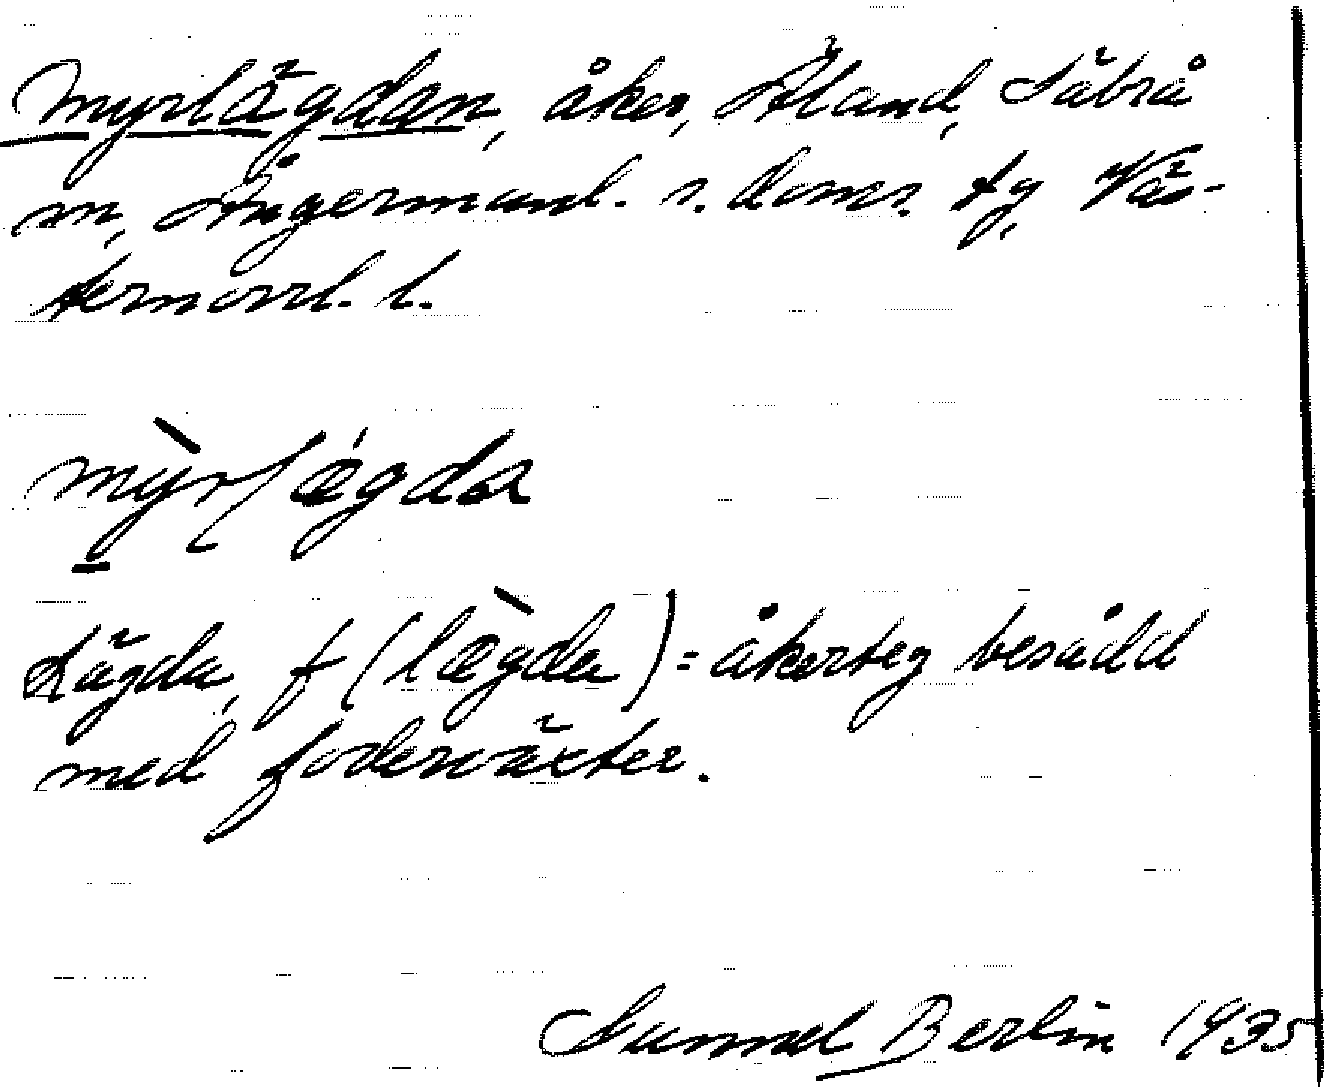 Myrlägdan, åker, Äland, Säbrå
sn, Ångermanl. s. doms. tg, Väs-
ternorrl. l.
mỳrlǽgda
Lägda, f (læ̀gda) = åkerteg besådd
med foderväxter.
Gunnel Berlin 1935